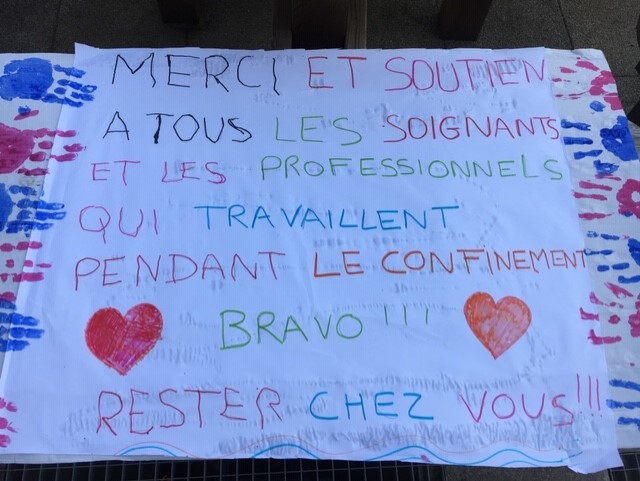 MERCI ET SOUTIEN
A TOUS LES SOIGNANTS
ET LES PROFESSIONNELS
QUI TRAVAILLENT
PENDANT LE CONFINEMENT
BRAVO !!!
RESTER CHEZ VOUS!!!